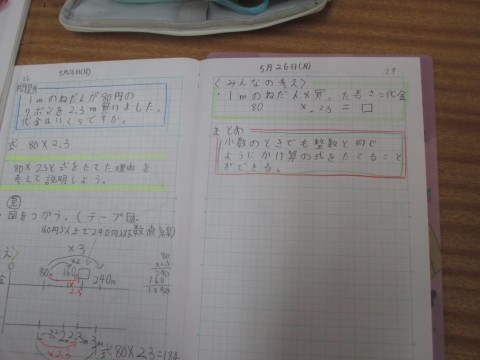 5月26日(月)
問題
1mのねだんが80円の
リボンを2.3m買いました。
代金はいくらですか。
式 80×2.3
80×2.3と式をたてた理由を
考えて説明しよう。
・図をつかう。(テープ図、
数直線図)
×3
80
160
240
240
160
1840
2.3
式 80×2.3=184
5月26日(月)
29
<みんなの考え>
・1mのねだん×買った長さ=代金
80 × 2.3 = □
まとめ
小数のときでも整数と同じ
ようにかけ算の式をたてること
ができる。